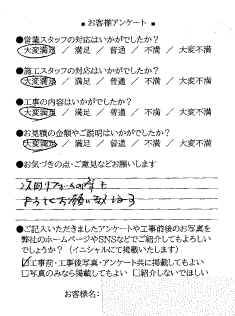 ■ お客様アンケート ■
●営業スタッフの対応はいかがでしたか？
大変満足 ／ 満足 ／ 普通 ／ 不満 ／ 大変不満
●施工スタッフの対応はいかがでしたか？
大変満足 ／ 満足 ／ 普通 ／ 不満 ／ 大変不満
●工事の内容はいかがでしたか？
大変満足 ／ 満足 ／ 普通 ／ 不満 ／ 大変不満
●お見積の金額やご説明はいかがでしたか？
大変満足 ／ 満足 ／ 普通 ／ 不満 ／ 大変不満
●お気づきの点・ご意見などお願いします
次回リフォームの
お願い
●ご記入いただきましたアンケートや工事前後のお写真を
弊社のホームページやSNSなどでご紹介してもよろしい
でしょうか？（イニシャルにて掲載いたします）
☑工事前・工事後写真・アンケート共に掲載してもよい
□写真のみなら掲載してもよい □紹介しないでほしい
お客様名：